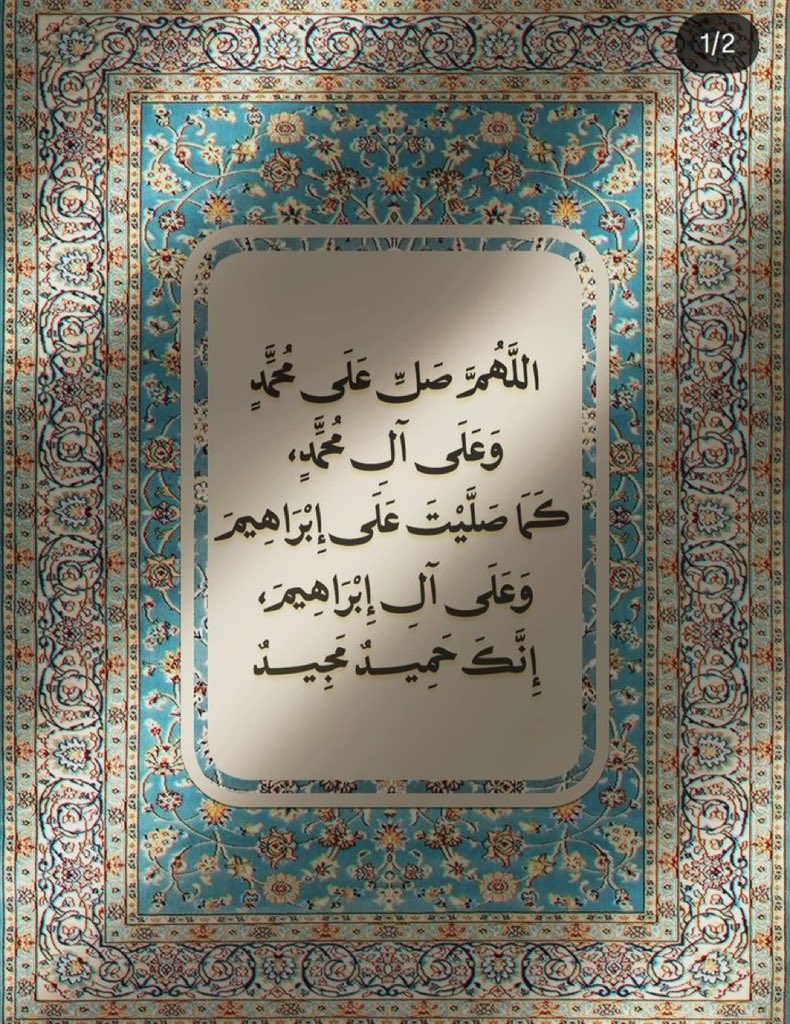 1/2
اللَّهُمَّ صَلِّ عَلَى مُحَمَّدٍ
وَعَلَى آلِ مُحَمَّدٍ،
كَمَا صَلَّيْتَ عَلَى إِبْرَاهِيمَ
وَعَلَى آلِ إِبْرَاهِيمَ،
إِنَّكَ حَمِيدٌ مَجِيدٌ